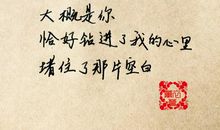 大概是你
恰好钻进了我的心里
堵住了那片空白